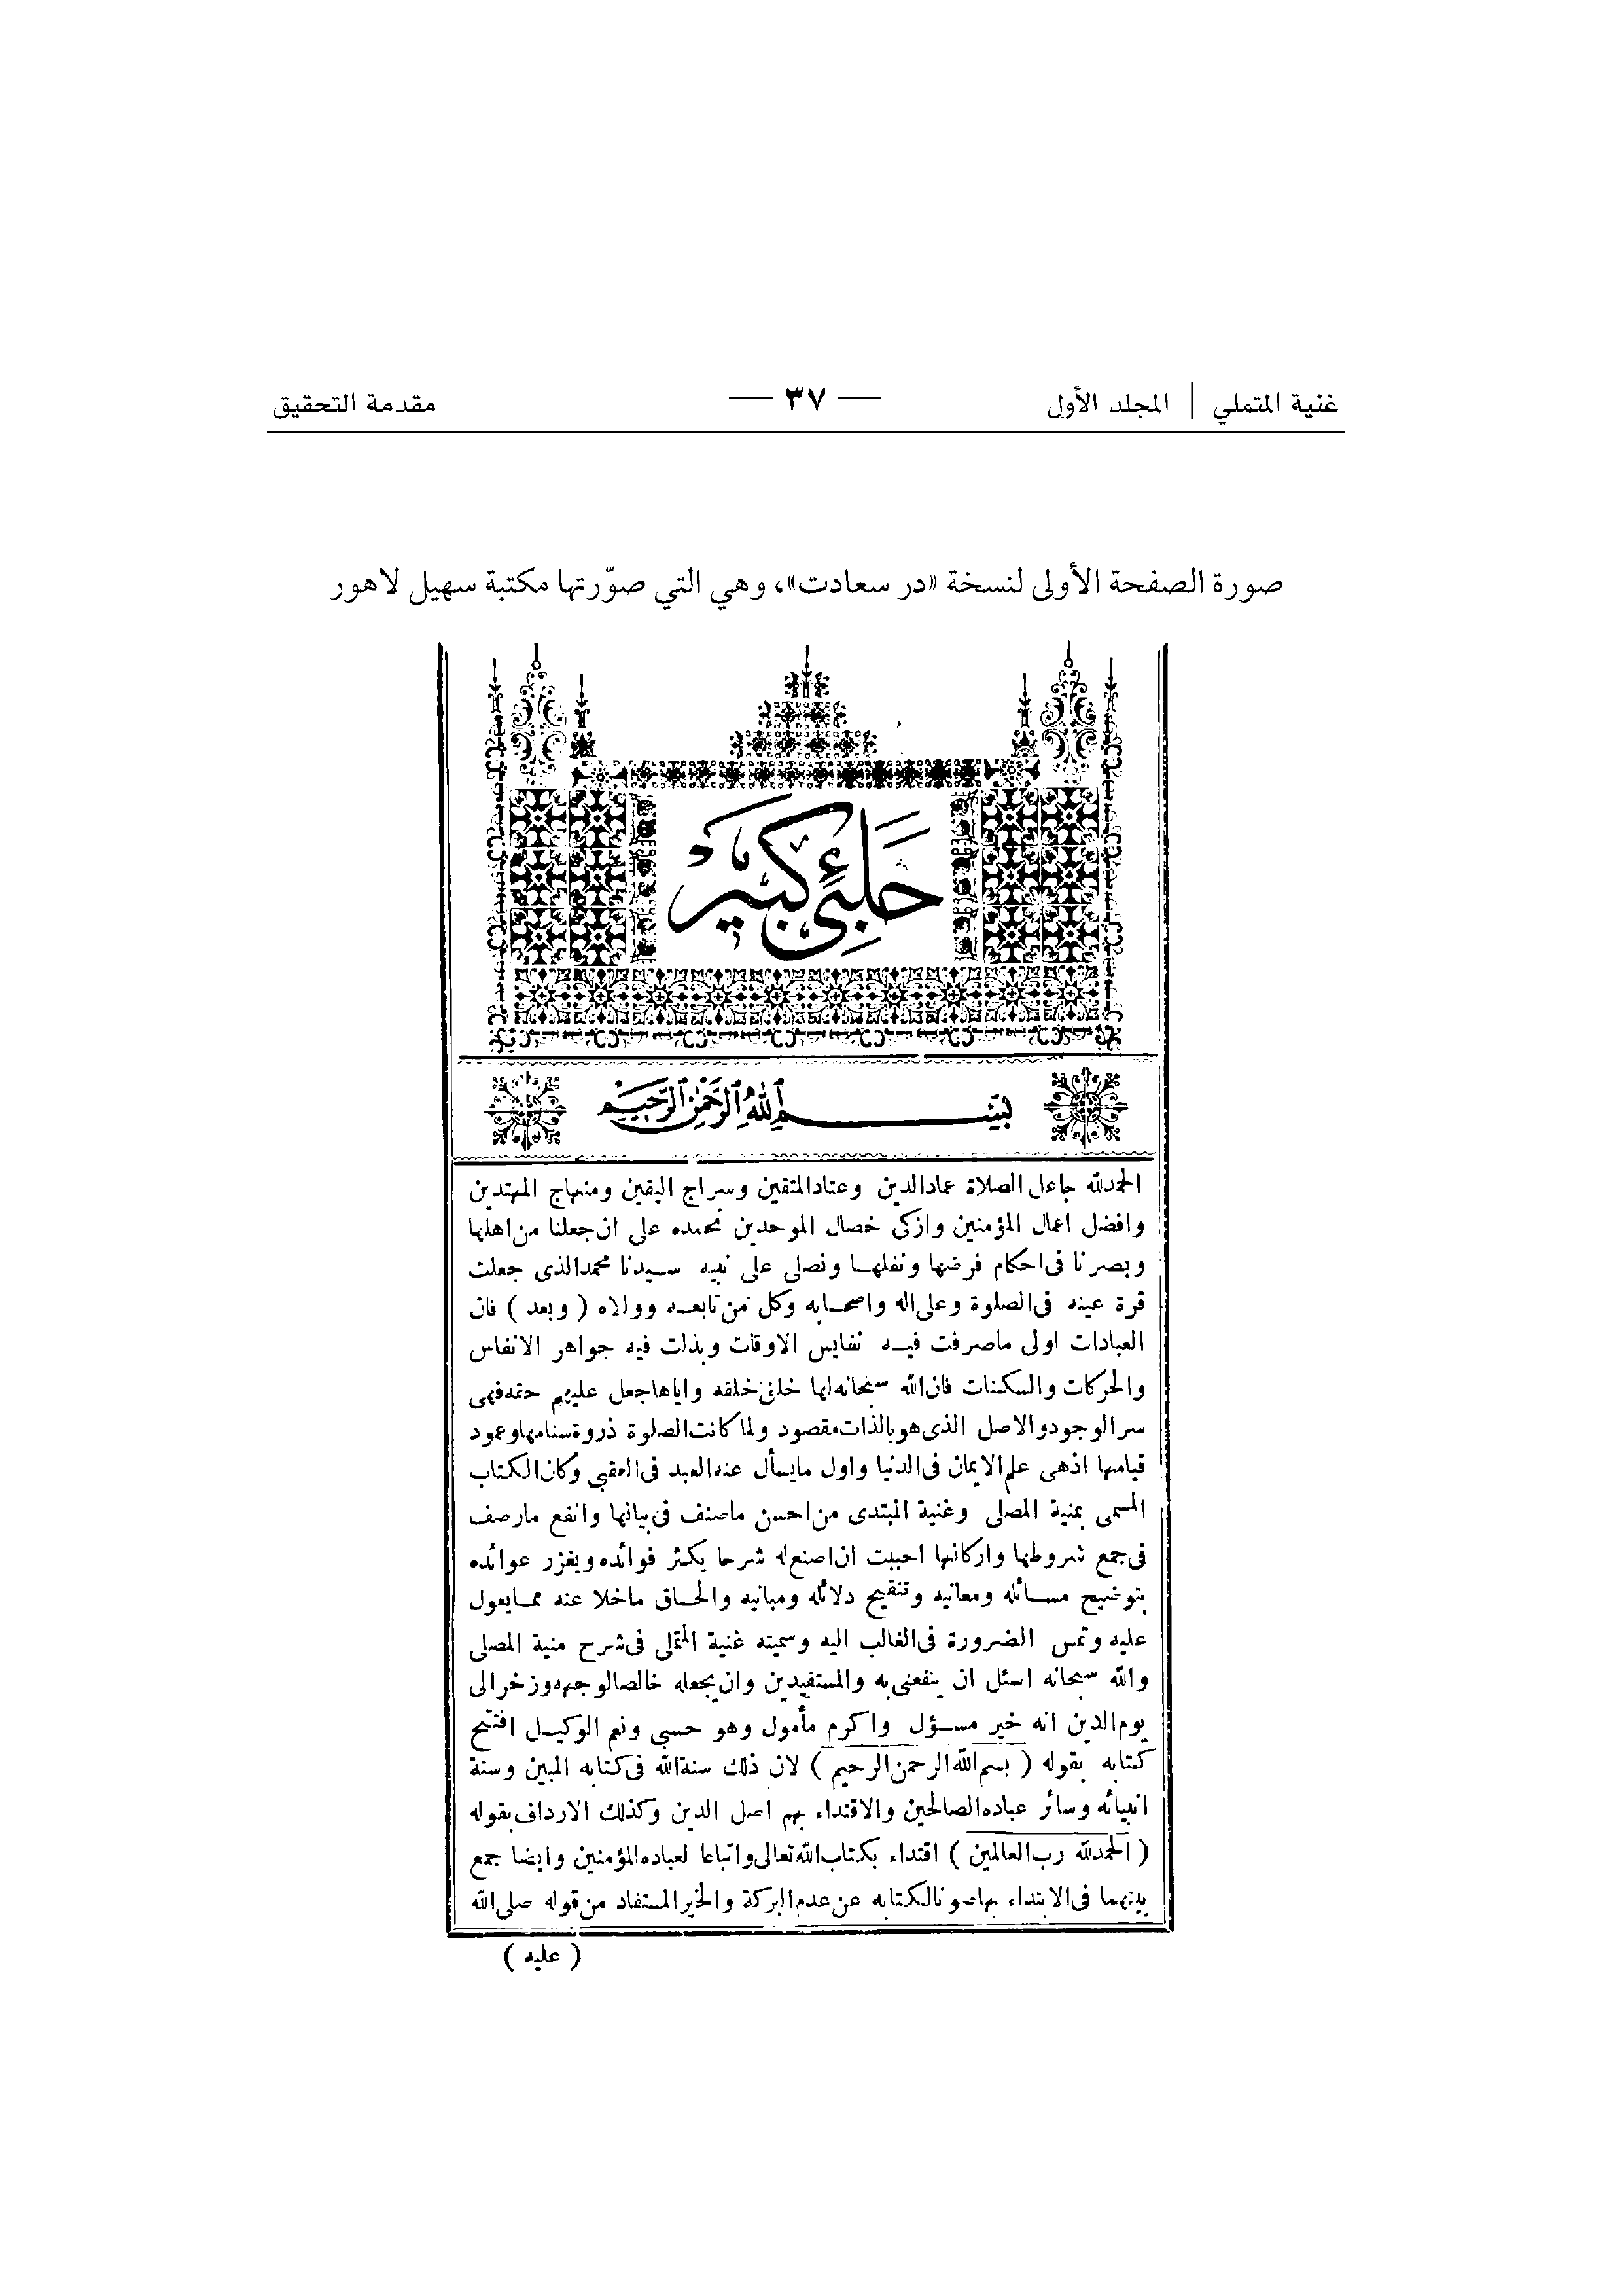 غنية المتملي | المجلد الأول — ٣٧ — مقدمة التحقيق
صورة الصفحة الأولى لنسخة «در سعادت»، وهي التي صوّرتها مكتبة سهيل لاهور
حلبئ كبير
بسم الله الرحمن الرحيم
الحمدلله جاعل الصلاة عمادالدين وعتادالمتقين وسراج اليقين ومنهاج المهتدين
وافضل اعمال المؤمنين وازكى خصال الموحدين نحمده على ان جعلنا من اهلها
وبصرنا فى احكام فرضها ونفلهـا ونصلى على نبيه سـيدنا محمد الذى جعلت
قرة عينه فى الصلوة وعلى اله واصحـابه وكل من تابعـه ووالاه ( وبعد ) فان
العبادات اولى ماصرفت فيـه نفايس الاوقات وبذلت فيه جواهر الانفاس
والحركات والسكنات فان الله سبحانه لها خلق خلقه واياها جعل عليهم حقه فهى
سر الوجود والاصل الذى هو بالذات مقصود ولما كانت الصلوة ذروة سنامها وعمود
قيامها اذهى علم الايمان فى الدنيا واول مايسأل عنه العبد فى العقبى وكان الكتاب
المسمى بمنية المصلى وغنية المبتدى من احسن ماصنف فى بيانها وانفع مارصف
فى جمع شروطها واركانها احببت ان اصنع له شرحا يكثر فوائده ويغزر عوائده
بتوضيح مسـائله ومعانيه وتنقيح دلائله ومبانيه والحـاق ماخلا عنه ممـايعول
عليه وتمس الضرورة فى الغالب اليه وسميته غنية المتملى فى شرح منية المصلى
والله سبحانه اسئل ان ينفعنى به والمستفيدين وان يجعله خالصا لوجهه وزخرالى
يوم الدين انه خير مسـؤل واكرم مأمول وهو حسبى ونعم الوكيـل افتتح
كتابه بقوله ( بسم الله الرحمن الرحيم ) لان ذلك سنة الله فى كتابه المبين وسنة
انبيائه وسائر عباده الصالحين والاقتداء بهم اصل الدين وكذلك الارداف بقوله
( الحمدلله رب العالمين ) اقتداء بكتاب الله تعالى واتباعا لعباده المؤمنين وايضا جمع
بينهما فى الابتداء بهما صونا لكتابه عن عدم البركة والخير المستفاد من قوله صلى الله
( عليه )